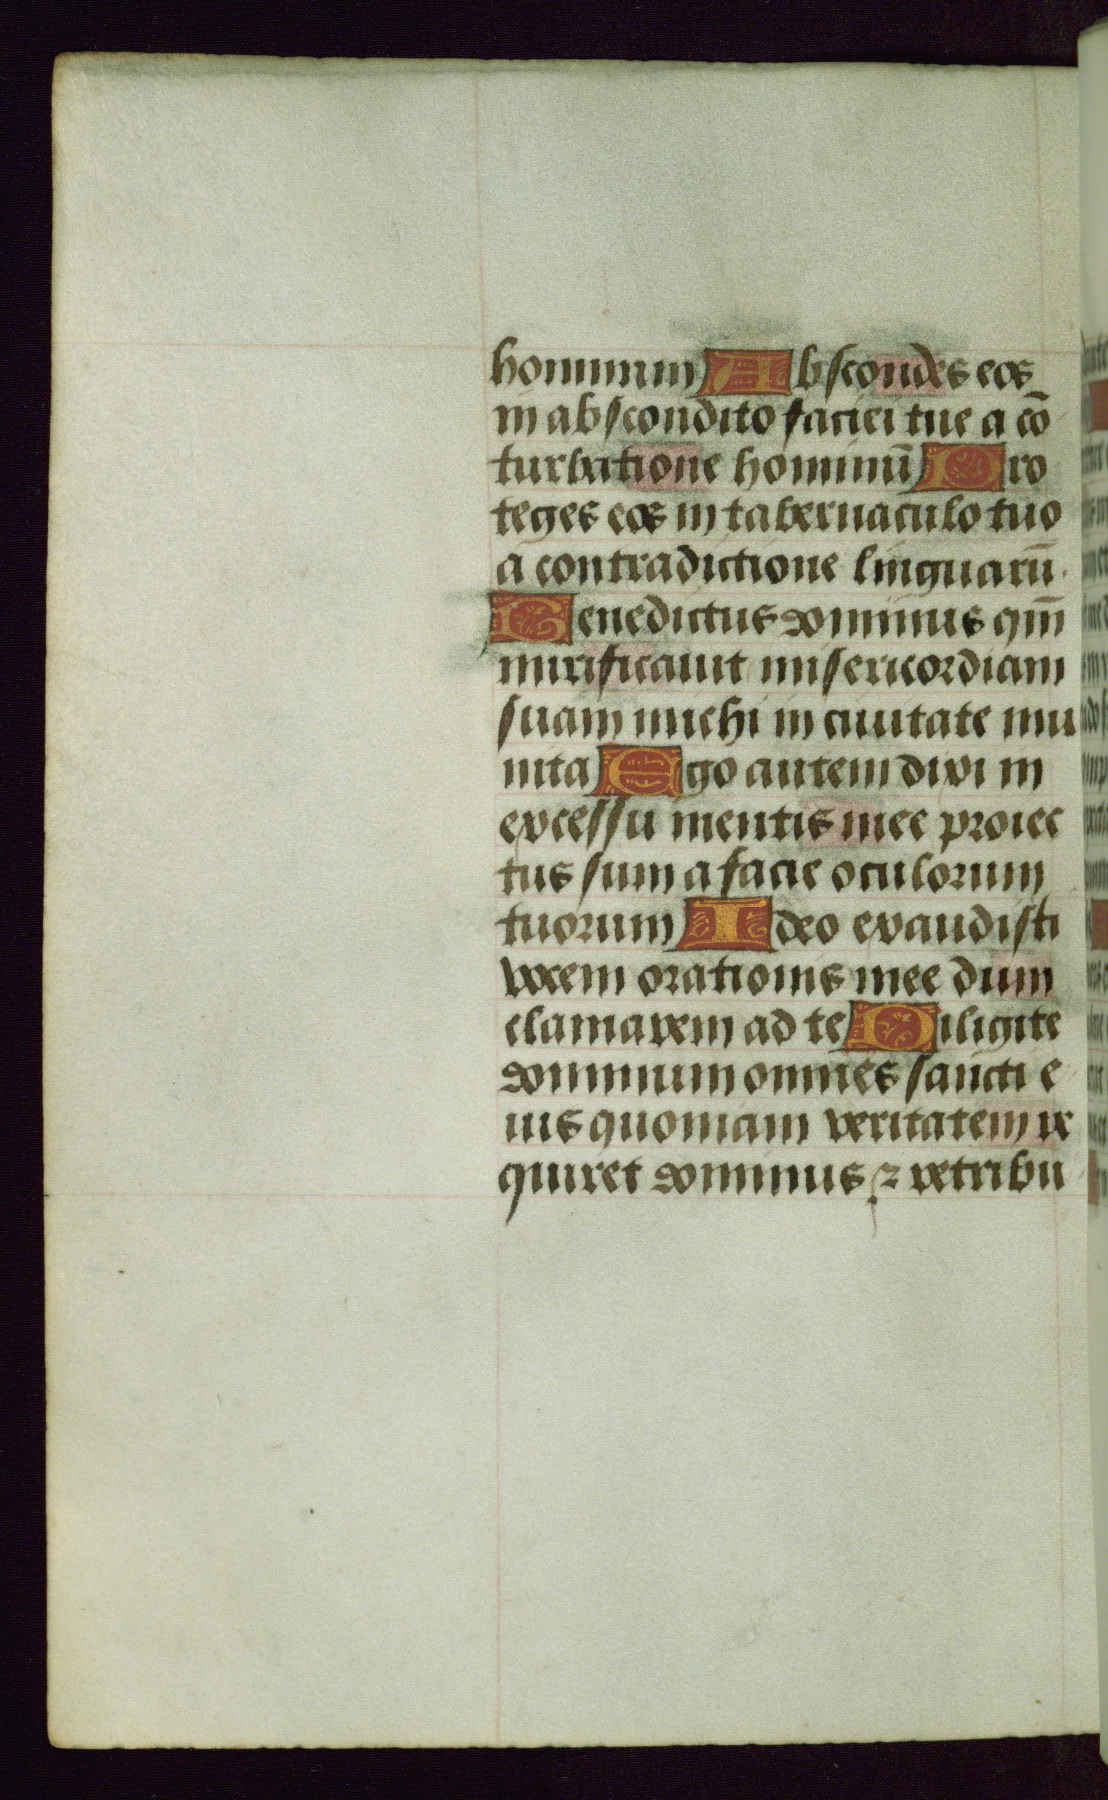 hominum Abscondes eos
in abscondito faciei tue a cō
turbatione hominū Pro
teges eos in tabernaculo tuo
a contradictione linguarū.
Benedictus dominus qm̄
mirificauit misericordiam
suam michi in ciuitate mu
nita Ego autem dixi in
excessu mentis mee proiec
tus sum a facie oculorum
tuorum Ideo exaudisti
vocem orationis mee dum
clamarem ad te Diligite
dominum omnes sancti e
ius quoniam veritatem re
quiret dominus ⁊ retribu